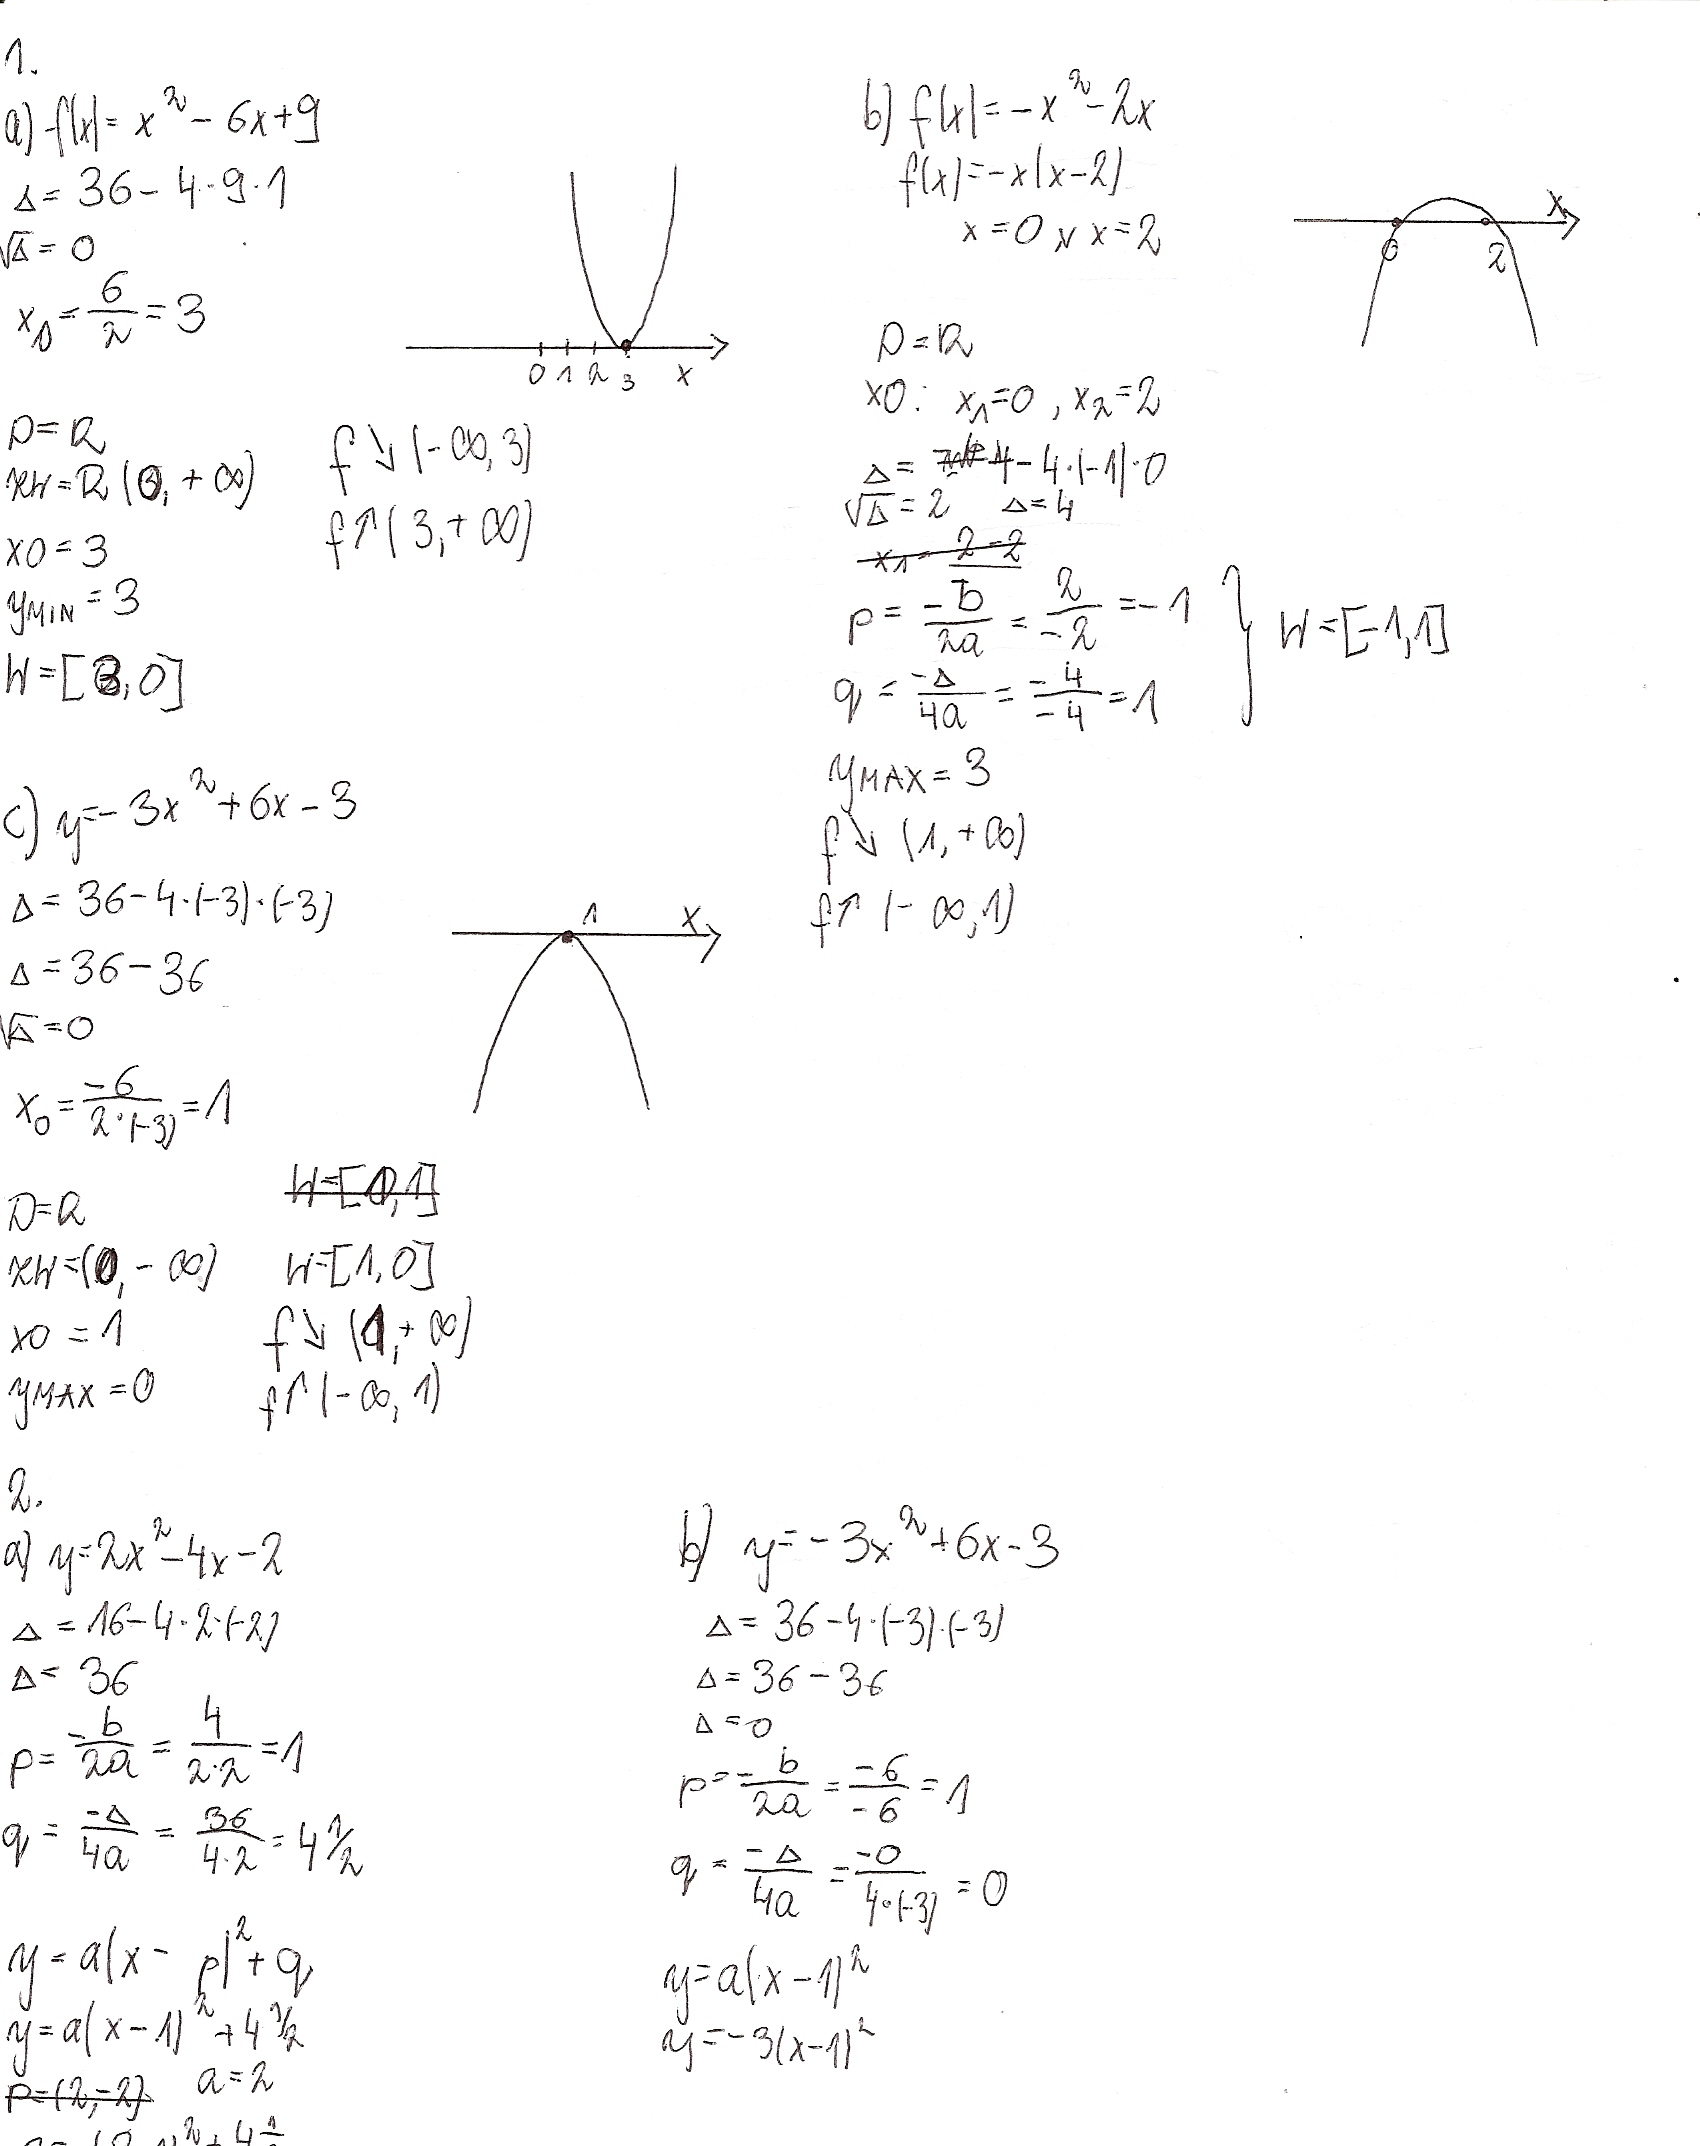 1.
a) f(x) = x² - 6x + 9
Δ = 36 - 4·9·1
√Δ = 0
x₀ = 6/2 = 3
0 1 2 3 x
D = R
ZW = R (0, + ∞)
x0 = 3
yMIN = 3
W = [3, 0]
f ↘ (- ∞, 3)
f ↗ (3, + ∞)
b) f(x) = -x² - 2x
f(x) = -x(x-2)
x = 0 ∨ x = 2
0 2 x
D = R
x0: x₁=0, x₂=2
Δ = 4 - 4·(-1)·0
√Δ = 2 Δ = 4
x₁ = 2-2
p = -b/2a = 2/-2 = -1
q = -Δ/4a = -4/-4 = 1
W = [-1, 1]
yMAX = 3
f ↘ (1, +∞)
f ↗ (- ∞, 1)
c) y = -3x² + 6x - 3
Δ = 36 - 4·(-3)·(-3)
Δ = 36 - 36
√Δ = 0
x₀ = -6/2·(-3) = 1
1 x
D = R
ZW = (0, - ∞)
x0 = 1
yMAX = 0
W = [0, 1]
W = [1, 0]
f ↘ (1, + ∞)
f ↗ (- ∞, 1)
2.
a) y = 2x² - 4x - 2
Δ = 16 - 4·2·(-2)
Δ = 36
p = -b/2a = 4/2·2 = 1
q = -Δ/4a = 36/4·2 = 4 1/2
y = a(x - p)² + q
y = a(x - 1)² + 4 1/2
p = (2, -2) a = 2
b) y = -3x² + 6x - 3
Δ = 36 - 4·(-3)·(-3)
Δ = 36 - 36
Δ = 0
p = -b/2a = -6/-6 = 1
q = -Δ/4a = -0/4·(-3) = 0
y = a(x - 1)²
y = -3(x - 1)²